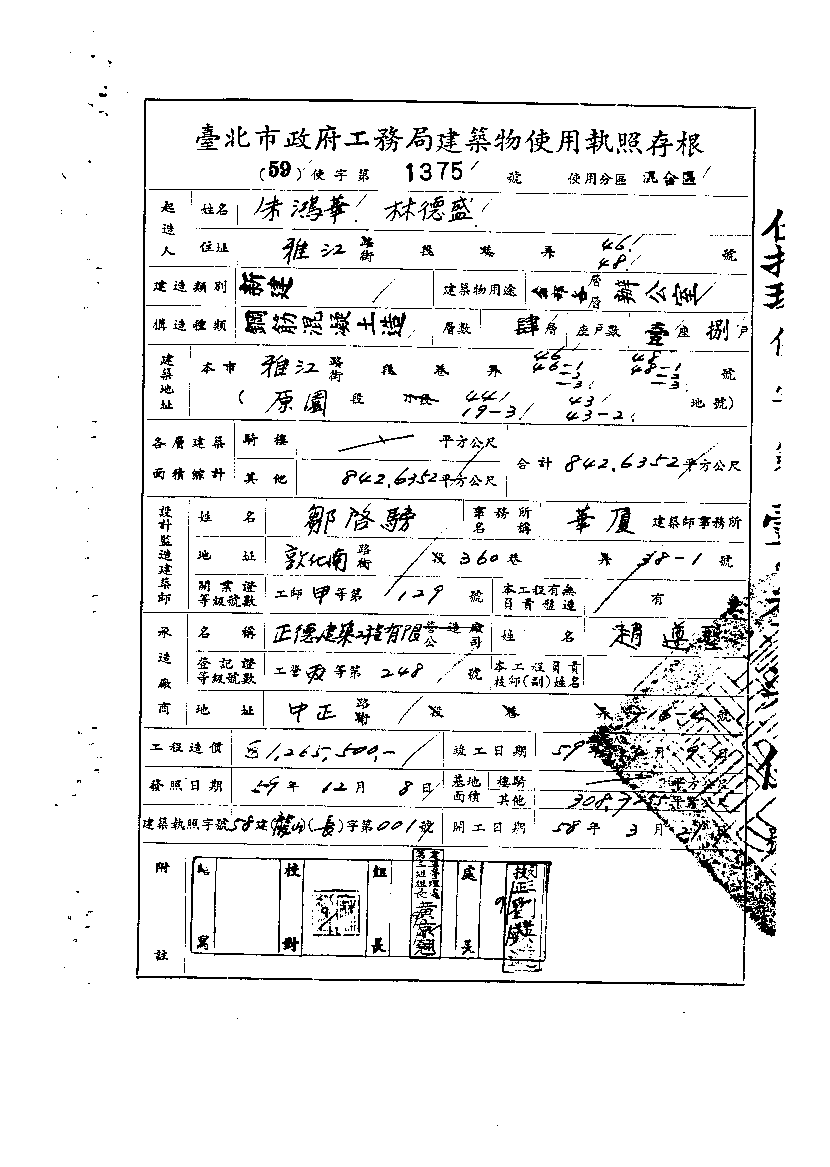 臺北市政府工務局建築物使用執照存根
(59)使字第 1375 號 使用分區 混合區
起造人 姓名 朱鴻華 林德盛
住址 雅江 路街 段 巷 弄 46 48 號
建造類別 新建 建築物用途 辦公室
構造種類 鋼筋混凝土造 層數 肆層 座戶數 壹座 捌戶
建築地址 本市 雅江 路街 段 巷 弄 46 46-1 -2 -3 48 48-1 -2 -3 號
( 原園 段 小段 44 19-3 43 43-2 地號)
各層建築面積總計 騎樓 平方公尺
其他 842.6352平方公尺 合計 842.6352平方公尺
設計監造建築師 姓名 鄒啓騁 事務所名稱 華廈 建築師事務所
地址 敦化南 路街 段 360 巷 弄 38-1 號
開業證等級號數 工師 甲等第 129 號 本工程有無負責監造 有
承造廠商 名稱 正德建築工程有限 營造廠公司 姓名 趙遵
登記證等級號數 工營 丙等第 248 號 本工程負責技師(副)姓名
地址 中正 路街 段 巷 弄 號
工程造價 1,265,500.- 竣工日期 59 月 9 日
發照日期 59年 12月 8日 基地面積 樓騎 平方公尺
其他 平方公尺
建築執照字號 58建(龍山)(長)字第001號 開工日期 58年 3月
附註
寫 校對 組長 處長